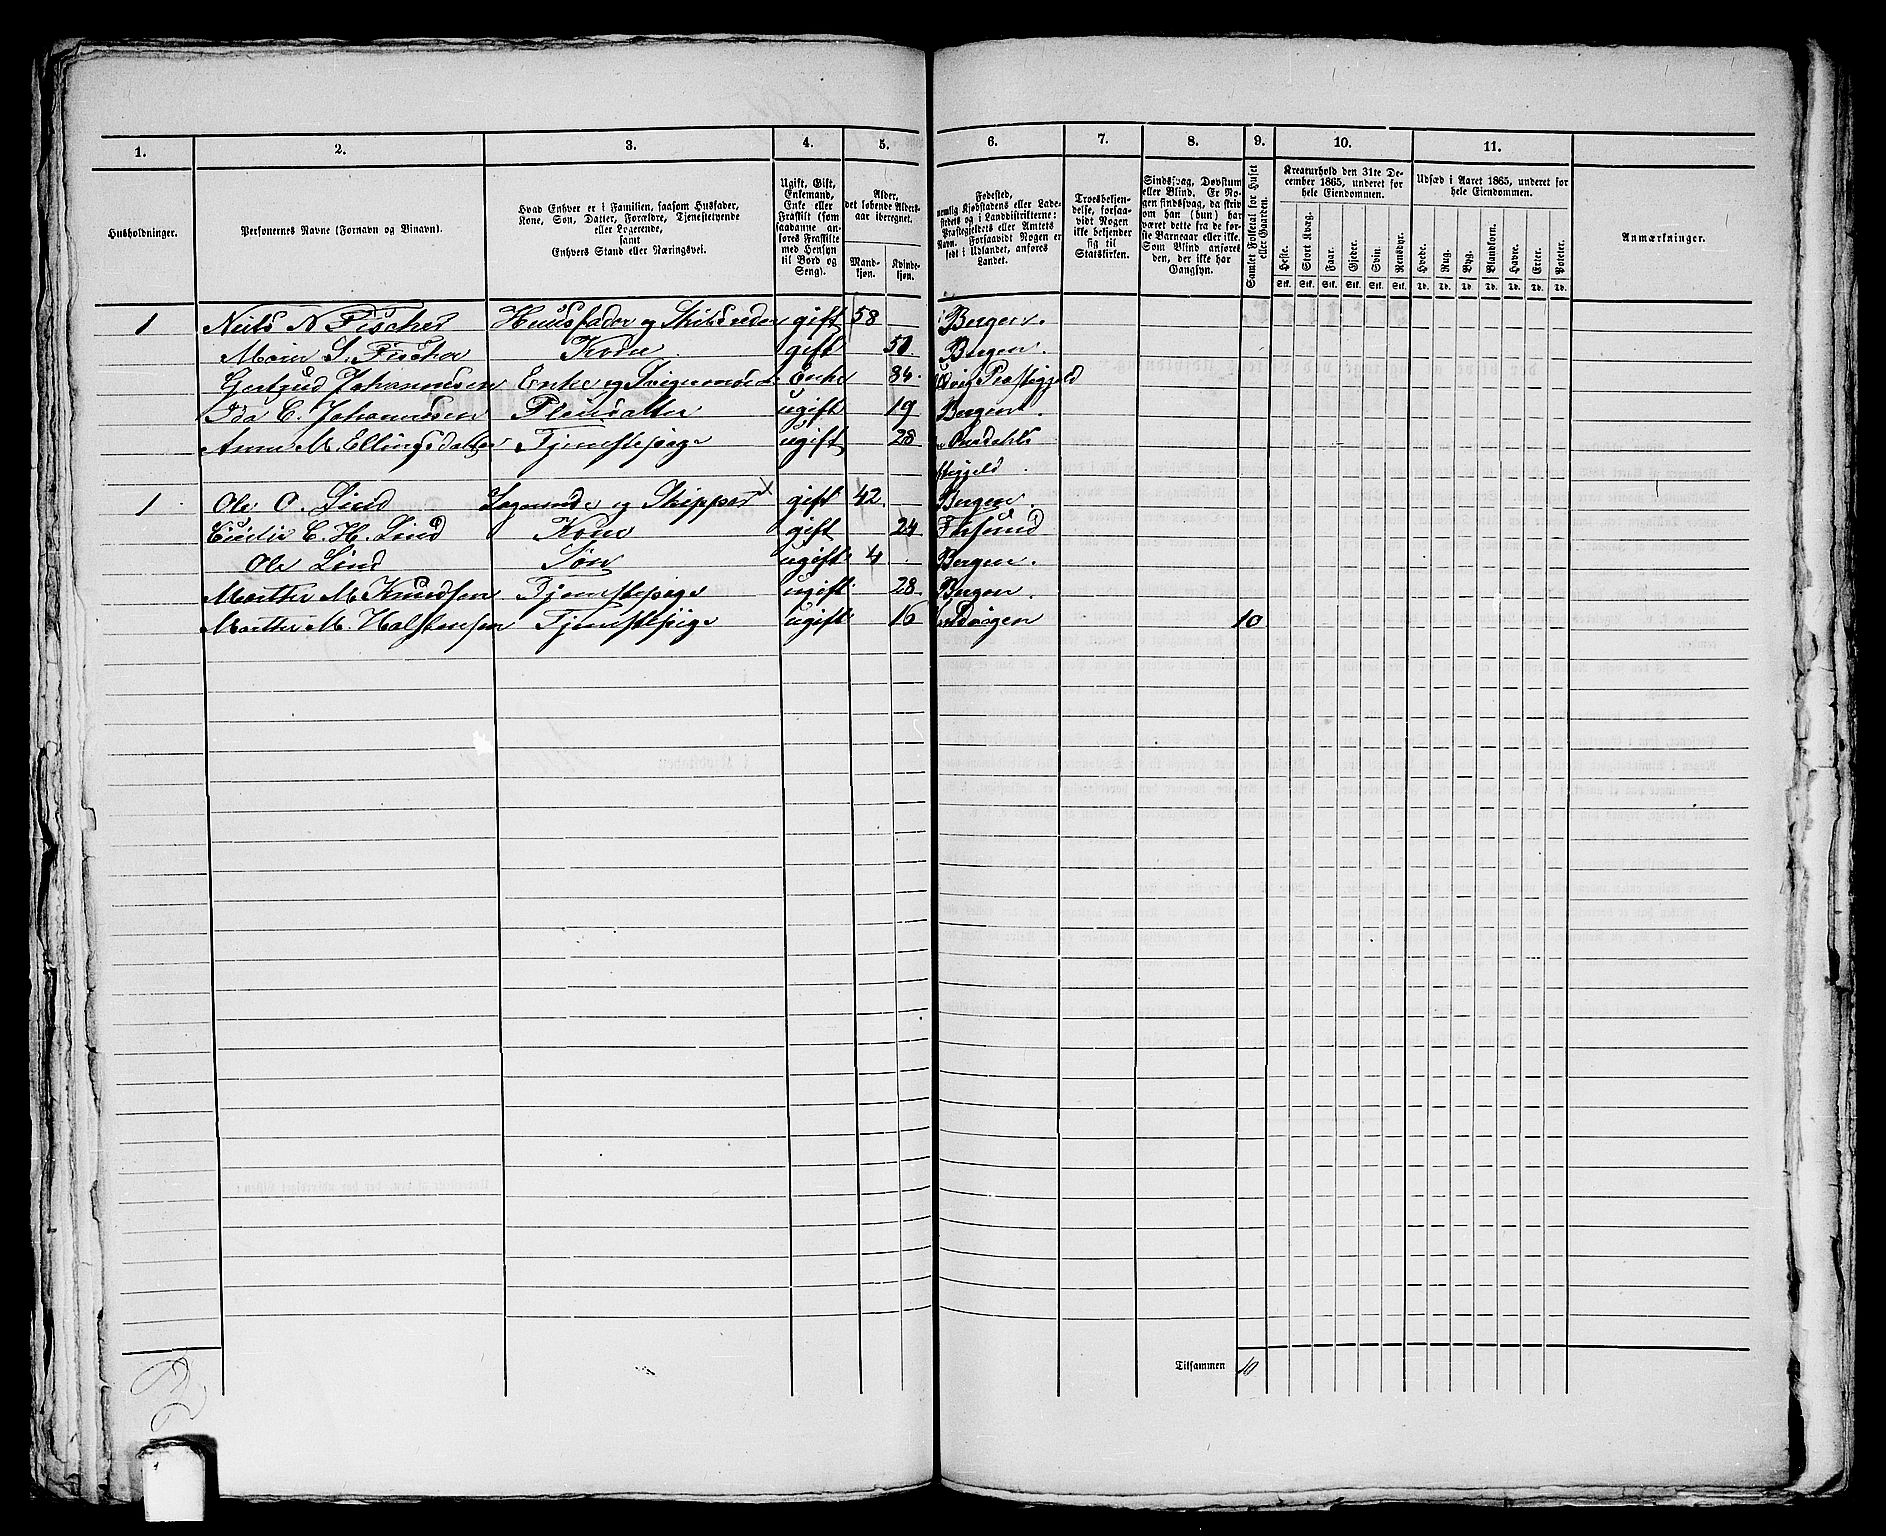 1. 2. 3. 4. 5. 6. 7. 8. 9. 10. 11.
Husholdninger.
Personernes Navne (Fornavn og Binavn).
Hvad Enhver er i Familien, saasom Husfader,
Kone, Søn, Datter, Forældre, Tjenestetyende
eller Logerende,
samt
Enhvers Stand eller Næringsvei.
Ugift, Gift,
Enkemand,
Enke eller
Fraskilt (som
saadanne an-
føres Fraskilte
med Hensyn
til Bord og
Seng).
Alder,
det løbende Alders-
aar iberegnet.
Mand-
kjøn.
Kvinde-
kjøn.
Fødested,
nemlig Kjøbstadens eller Lade-
stedets og i Landdistrikterne:
Præstegjeldets eller Amtets
Navn. Forsaavidt Nogen er
født i Udlandet, anføres
Landet.
Troesbekjen-
delse, forsaa-
vidt Nogen
ikke bekjender
sig til
Statskirken.
Sindssvag, Døvstum
eller Blind. Er No-
gen sindssvag, da skriv
om han (hun) har
været dette fra de før-
ste Barneaar eller ikke.
Som Blind anføres
den, der ikke har
Gangsyn.
Samlet Folketal for Huset
eller Gaarden.
Kreaturhold den 31te De-
cember 1865, underet for
hele Eiendommen.
Heste. Stort Kvæg. Faar. Gjeder. Svin. Rensdyr.
Stk. Stk. Stk. Stk. Stk. Stk.
Udsæd i Aaret 1865, underet for
hele Eiendommen.
Hvede. Rug. Byg. Blandkorn. Havre. Erter. Poteter.
Td. Td. Td. Td. Td. Td. Td.
Anmærkninger.
1 Niels N Fischer Huusfader og gift 58 Bergen.
S. Fischer Kone gift 50 Bergen.
Gertrud Johannesen Enke og Enke 84. Præstegjeld
Ida C. Johannesen Pleiedatter ugift 19 Bergen.
Anne M. Ellingsdatter Tjenestepige ugift 28
1 Ole O. Lind Logerende og Skipper gift 42. Bergen.
C. H. Lind Kone gift 24
Ole Lind Søn ugift 4 Bergen.
Marthe M. Knudsen Tjenestepige ugift 28. Bergen.
Marthe M Halstensen Tjenestepige ugift 16 10
Tilsammen 10